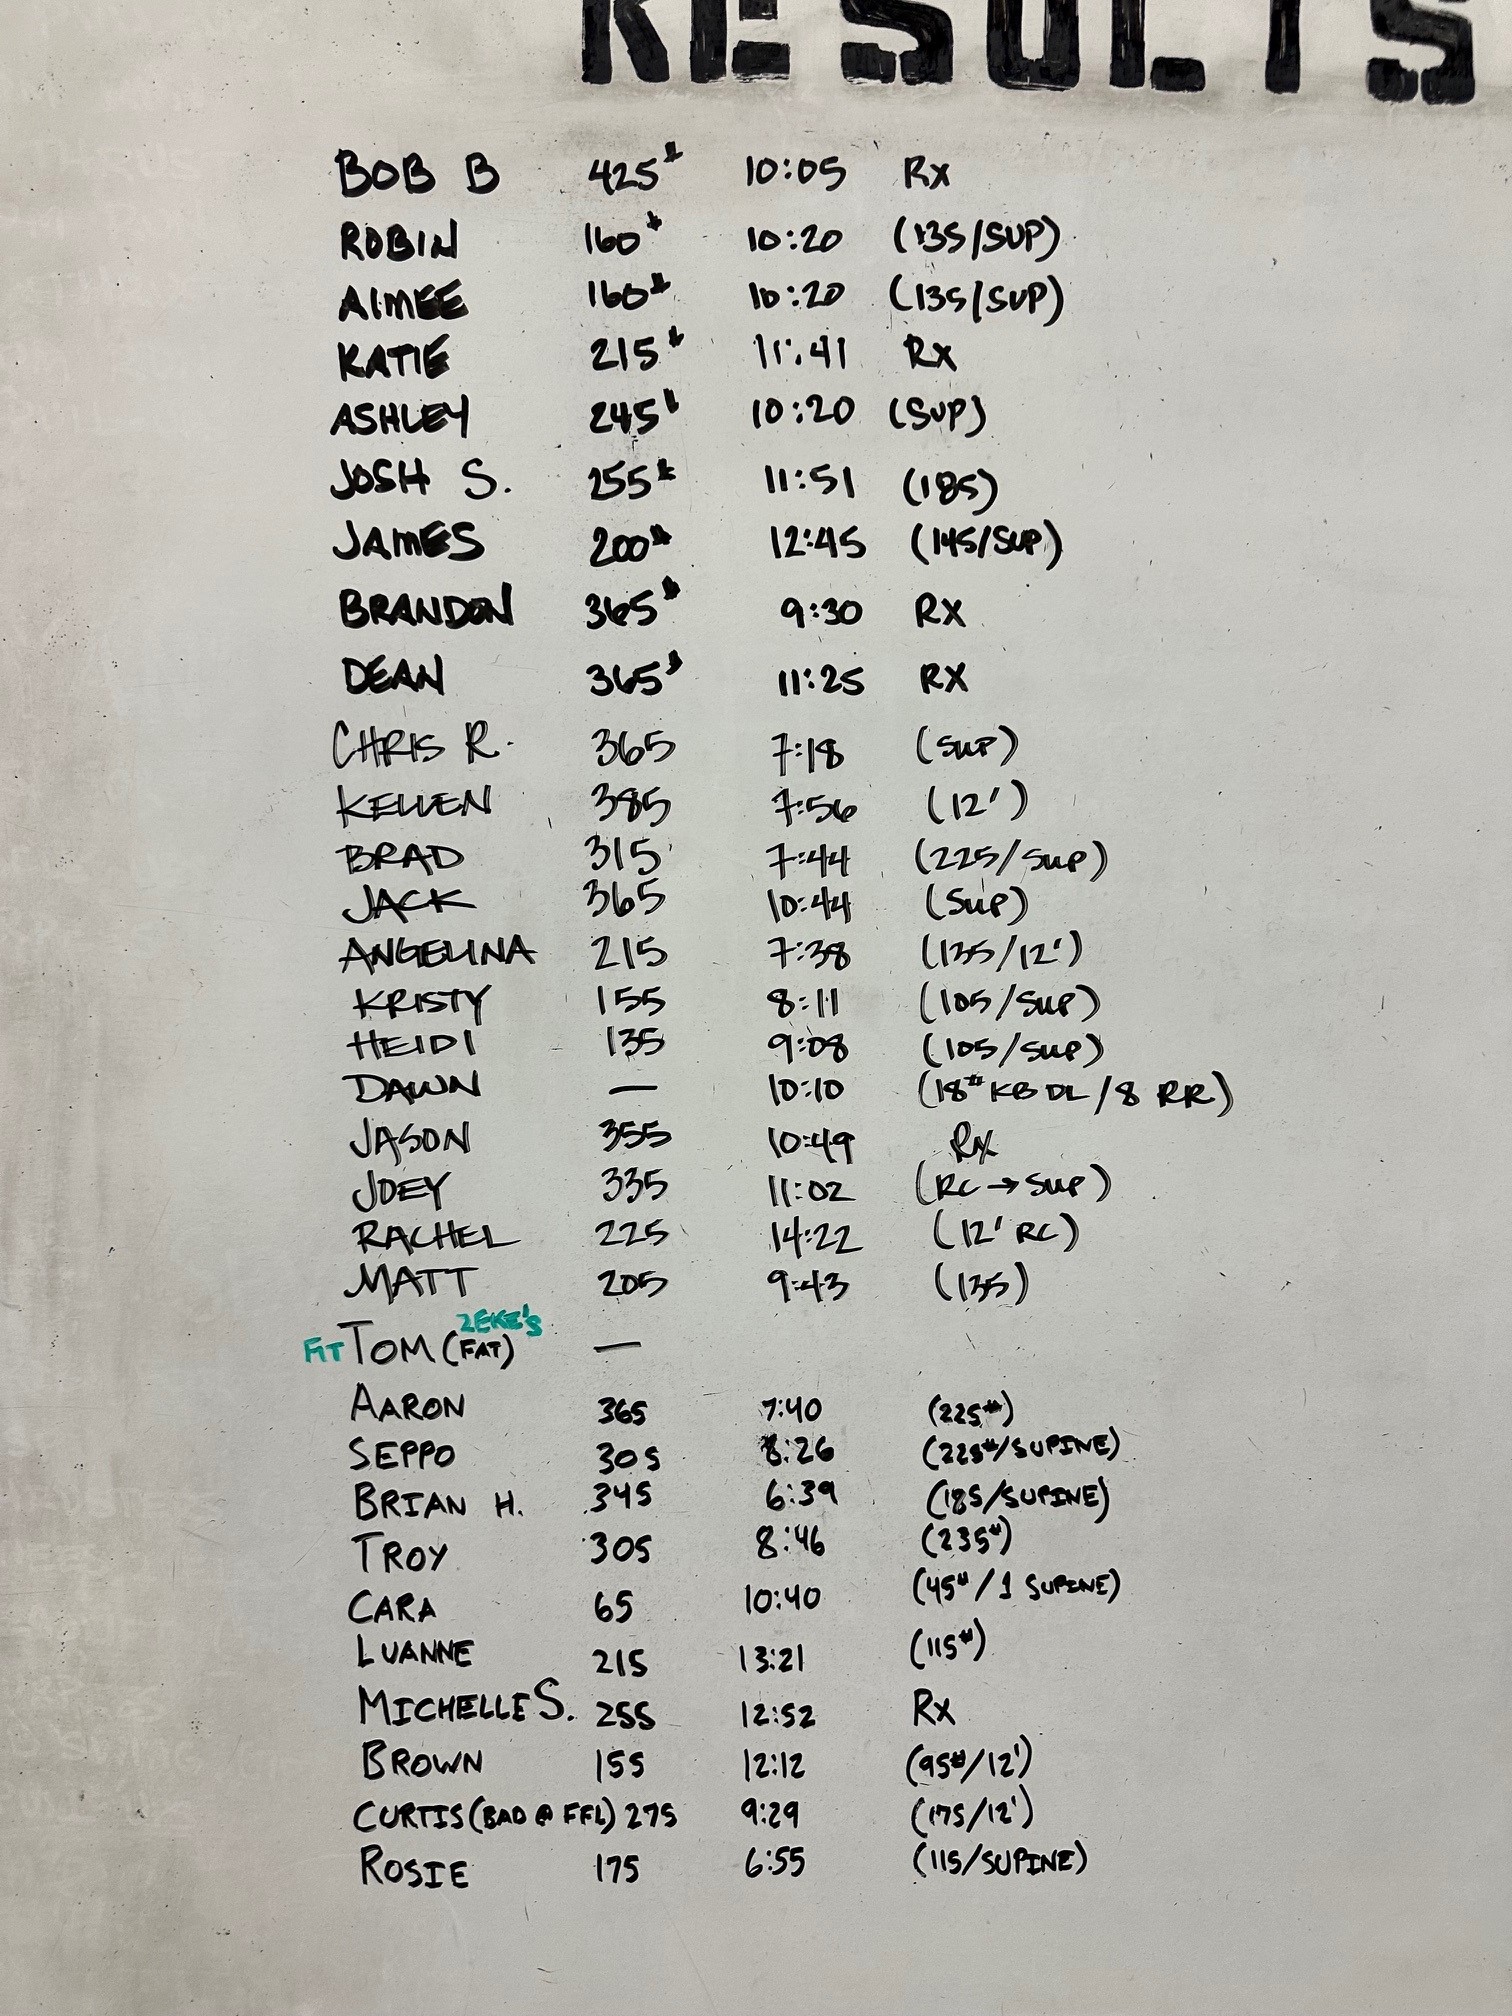 RESULTS
BOB B 425# 10:05 Rx
ROBIN 160# 10:20 (135/SUP)
AIMEE 160# 10:20 (135/SUP)
KATIE 215# 11:41 Rx
ASHLEY 245# 10:20 (SUP)
JOSH S. 255# 11:51 (185)
JAMES 200# 12:45 (145/SUP)
BRANDON 365# 9:30 RX
DEAN 365# 11:25 RX
CHRIS R. 365 7:18 (SUP)
KELLEN 385 7:56 (12')
BRAD 315 7:44 (225/SUP)
JACK 365 10:44 (SUP)
ANGELINA 215 7:38 (135/12')
KRISTY 155 8:11 (105/SUP)
HEIDI 135 9:08 (105/SUP)
DAWN — 10:10 (18# KB DL/8 RR)
JASON 355 10:49 Rx
JOEY 335 11:02 (RC→SUP)
RACHEL 225 14:22 (12' RC)
MATT 205 9:43 (135)
ZEKE'S
FIT TOM (FAT) —
AARON 365 7:40 (225#)
SEPPO 305 8:26 (225#/SUPINE)
BRIAN H. 345 6:39 (185/SUPINE)
TROY 305 8:46 (235#)
CARA 65 10:40 (45#/1 SUPINE)
LUANNE 215 13:21 (115#)
MICHELLE S. 255 12:52 Rx
BROWN 155 12:12 (95#/12')
CURTIS (BAD @ FFL) 275 9:29 (175/12')
ROSIE 175 6:55 (115/SUPINE)